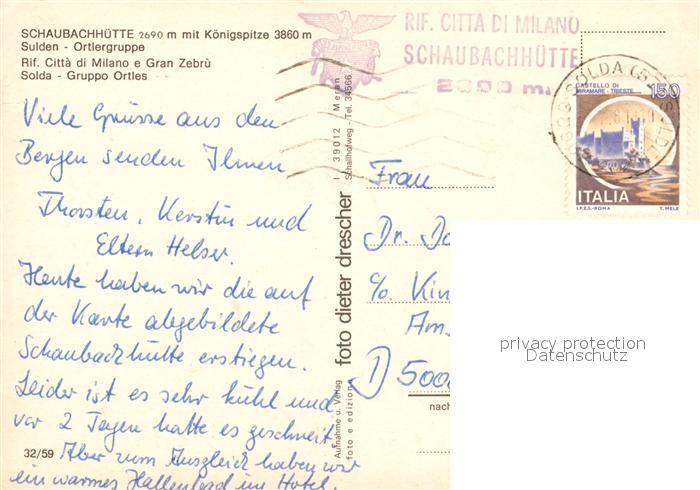 SCHAUBACHHÜTTE 2690 m mit Königspitze 3860 m
Sulden - Ortlergruppe
Rif. Città di Milano e Gran Zebrù
Solda - Gruppo Ortles
RIF. CITTA DI MILANO
SCHAUBACHHÜTTE
2690 m.
SOLDA
CASTELLO DI
MIRAMARE - TRIESTE
150
ITALIA
I.P.Z.S. - ROMA
T. MELE
Viele Grüsse aus den
Bergen senden Ihnen
Thorsten, Kerstin und
Eltern Helser.
Heute haben wir die auf
der Karte abgebildete
Schaubachhütte erstiegen.
Leider ist es sehr kühl und
vor 2 Tagen hatte es geschneit.
Aber zum Ausgleich haben wir
ein warmes Hallenbad im Hotel.
32/59
Aufnahme u. Verlag
foto e edizione
foto dieter drescher
I 39012 Meran
Schallhofweg - Tel. 34566
Frau
Dr. Do
c/o Kin
Am
D 5000
nach
privacy protection
Datenschutz